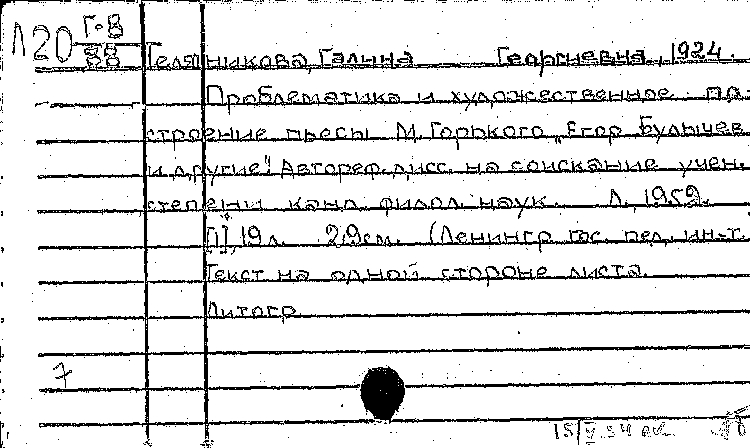 Л20 Г-8/88
Телятникова, Галина Георгиевна, 1924.
Проблематика и художественное по-
строение пьесы М. Горького „Егор Булычев
и другие". Автореф. дисс. на соискание учен.
степени канд. филол. наук. Л., 1959.
[1], 19 л. 29 см. (Ленингр. гос. пед. ин-т.
Текст на одной стороне листа.
Литогр.
7